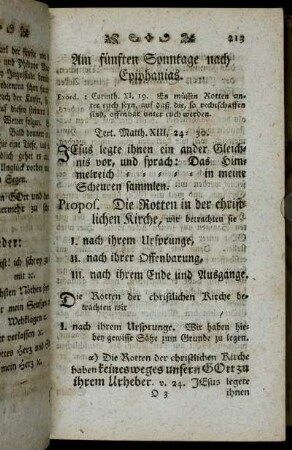 213
Am fünften Sonntage nach
Epiphanias.
Exord. 1 Corinth. XI. 19. Es müssen Rotten un-
ter euch seyn, auf daß die, so rechtschaffen
sind, offenbar unter euch werden.
Text. Matth. XIII, 24- 30.
JEsus legte ihnen ein ander Gleich-
nis vor, und sprach: Das Him-
melreich in meine
Scheuren sammlen.
Propos. Die Rotten in der christ-
lichen Kirche, wir betrachten sie
I. nach ihrem Ursprunge,
II. nach ihrer Offenbarung,
III. nach ihrem Ende und Ausgange.
Die Rotten der christlichen Kirche be-
trachten wir
I. nach ihrem Ursprunge. Wir haben hie-
bey gewisse Sätze zum Grunde zu legen.
a) Die Rotten der christlichen Kirche
haben keinesweges unsern GOtt zu
ihrem Urheber. v. 24. JEsus legete
O 3 ihnen